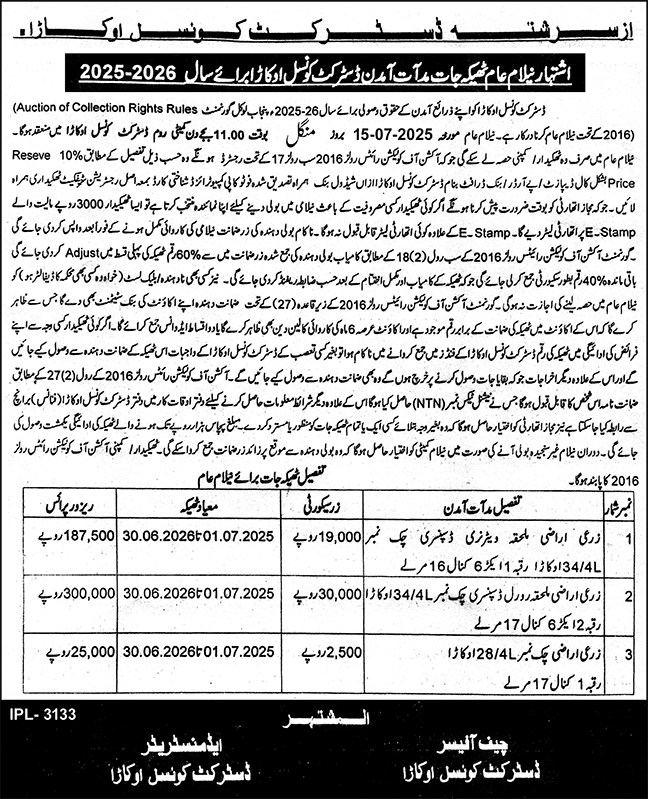 از سرشتہ ڈسٹرکٹ کونسل اوکاڑا
اشتہار نیلام عام ٹھیکہ جات مدآت آمدن ڈسٹرکٹ کونسل اوکاڑا برائے سال 2025-2026
ڈسٹرکٹ کونسل اوکاڑا کو اپنے ذرائع آمدن کے حقوق وصولی برائے سال 26-2025ء پنجاب لوکل گورنمنٹ (Auction of Collection Rights Rules
2016) کے تحت نیلام عام کرنا درکار ہے۔ نیلام عام مورخہ 15-07-2025 بروز منگل بوقت 11.00 بجے دن کمیٹی روم ڈسٹرکٹ کونسل اوکاڑا میں منعقد ہوگا۔
نیلام عام میں صرف وہ ٹھیکیدار/کمپنی حصہ لے سکے گی جو کہ آکشن آف کولیکشن رائٹس رولز 2016 سب رولز 17 کے تحت رجسٹرڈ ہونگے وہ حسب ذیل تفصیل کے مطابق 10% Reseve
Price بشکل کال ڈیپازٹ/پے آرڈر/بنک ڈرافٹ بنام ڈسٹرکٹ کونسل اوکاڑا از اں شیڈول بنک ہمراہ تصدیق شدہ فوٹو کاپی کمپیوٹرائزڈ شناختی کارڈ بمعہ اصل رجسٹریشن سرٹیفکیٹ ٹھیکیداری ہمراہ
لائیں۔ جو کہ مجاز اتھارٹی کو بوقت ضرورت پیش کرنا ہونگے اگر کوئی ٹھیکیدار کسی مصروفیت کے باعث نیلامی میں بولی دینے کیلئے اپنا نمائندہ منتخب کرتا ہے تو ایسا ٹھیکیدار 3000 روپے مالیت والے
E-Stamp پر اتھارٹی لیٹر دے گا۔ E-Stamp کے علاوہ کوئی اتھارٹی لیٹر قابل قبول نہ ہوگا۔ ناکام بولی دہندہ کی زر ضمانت نیلامی کی کاروائی مکمل ہونے کے فوراً بعد واپس کر دی جائے گی
۔ گورنمنٹ آکشن آف کولیکشن رائیٹس رولز 2016 کے سب رول (2)18 کے مطابق کامیاب بولی دہندہ کی جمع شدہ زر ضمانت میں سے 60% رقم ٹھیکہ کی پہلی قسط میں Adjust کر دی جائے گی
باقی ماندہ 40% رقم بطور سیکورٹی جمع کر لی جائے گی جو کہ ٹھیکہ کے کامیاب اور مکمل اختتام کے بعد حسب ضابطہ ریلیز کر دی جائے گی۔ نیز کسی بھی نادہندہ/بلیک لسٹ (خواہ وہ کسی بھی محکمہ کا ڈیفالٹر ہو) کو
نیلام عام میں حصہ لینے کی اجازت نہ ہوگی۔ گورنمنٹ آکشن آف کولیکشن رائیٹس رولز 2016 کے زیر قاعدہ (27) کے تحت ضمانت دہندہ اپنے اکاؤنٹ کی بنک سٹیٹمنٹ بھی دے گا جس سے ظاہر
کرے گا کہ اس کے اکاؤنٹ میں ٹھیکہ کی ضمانت کے برابر رقم موجود ہے اور اکاؤنٹ عرصہ 6 ماہ کی کاروائی کا لین دین بھی ظاہر کرے گا یا دو اقساط ایڈوانس جمع کرائے گا۔ اگر کوئی ٹھیکیدار کسی وجہ سے اپنے
فرائض کی ادائیگی میں ٹھیکہ کی رقم ڈسٹرکٹ کونسل اوکاڑا کے فنڈز میں جمع کروانے میں ناکام ہوا تو بغیر کسی تعصب کے ڈسٹرکٹ کونسل اوکاڑا کے واجبات اس ٹھیکہ کے ضمانت دہندہ سے وصول کیے جائیں
گے اور اس کے علاوہ دیگر اخراجات جو کہ بقایا جات وصول کرنے پر خرچ ہوں گے وہ بھی ضمانت دہندہ سے وصول کیے جائیں گے۔ آکشن آف کولیکشن رائٹس رولز 2016 کے رول (2)27 کے مطابق
ضمانت نامہ اس شخص کا قابل قبول ہوگا جس نے نیشنل ٹیکس نمبر (NTN) حاصل کیا ہوگا اس کے علاوہ دیگر شرائط معلومات حاصل کرنے کیلئے دفتر اوقات کار میں دفتر ڈسٹرکٹ کونسل اوکاڑا (فنانس) برانچ
سے رابطہ کیا جا سکتا ہے نیز مجاز اتھارٹی کو اختیار حاصل ہوگا کہ وہ بغیر وجہ بتلائے کسی ایک یا تمام ٹھیکہ جات کو منظور یا مسترد کر دے۔ مبلغ پچاس ہزار روپے تک ہونے والے ٹھیکہ کی ادائیگی یکمشت وصول کی
جائے گی۔ دوران نیلام غیر سنجیدہ بولی آنے کی صورت میں نیلام کمیٹی کو اختیار حاصل ہوگا کہ وہ بولی دہندہ سے موقع پر زائد زر ضمانت جمع کروا سکے گی۔ ٹھیکیدار/کمپنی آکشن آف کولیکشن رائٹس رولز
2016 کا پابند ہوگا۔
تفصیل ٹھیکہ جات برائے نیلام عام
نمبر شمار تفصیل مدآت آمدن زر سیکورٹی معیاد ٹھیکہ ریزور پرائس
1 زرعی اراضی ملحقہ ویٹرنری ڈسپنسری چک نمبر 19,000 روپے 01.07.2025 تا 30.06.2026 187,500 روپے
34/4L اوکاڑا رقبہ 1 ایکڑ 6 کنال 16 مرلے
2 زرعی اراضی ملحقہ رورل ڈسپنسری چک نمبر 34/4L اوکاڑا 30,000 روپے 01.07.2025 تا 30.06.2026 300,000 روپے
رقبہ 2 ایکڑ 6 کنال 17 مرلے
3 زرعی اراضی چک نمبر 28/4L اوکاڑا 2,500 روپے 01.07.2025 تا 30.06.2026 25,000 روپے
رقبہ 1 کنال 17 مرلے
IPL-3133
المشتہر
چیف آفیسر ایڈمنسٹریٹر
ڈسٹرکٹ کونسل اوکاڑا ڈسٹرکٹ کونسل اوکاڑا